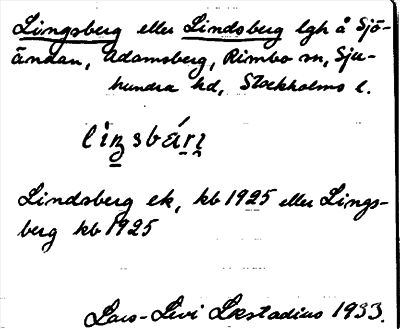 Lingsberg eller Lindsberg lgh å Sjö-
ändan, Adamsberg, Rimbo sn, Sju-
hundra hd, Stockholms l.
liŋsbárị
Lindsberg ek, kb 1925 eller Lings-
berg kb 1925
Lars-Levi Læstadius 1933.